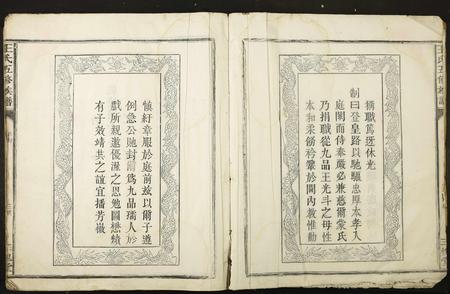 稱職篤迓休光
制曰登皇路以馳驅忠厚本孝人
庭闈而侍奉嚴必兼慈爾蒙氏
乃捐職從九品王光斗之母性
本和柔衿蒙於閫內教惟勤
慎紆章服於庭前茲以爾子遵
例急公貤封爾爲九品孺人於
戲所親邀優渥之恩勉圖懋績
有子效靖共之誼宜播芳徽
王氏互修族譜